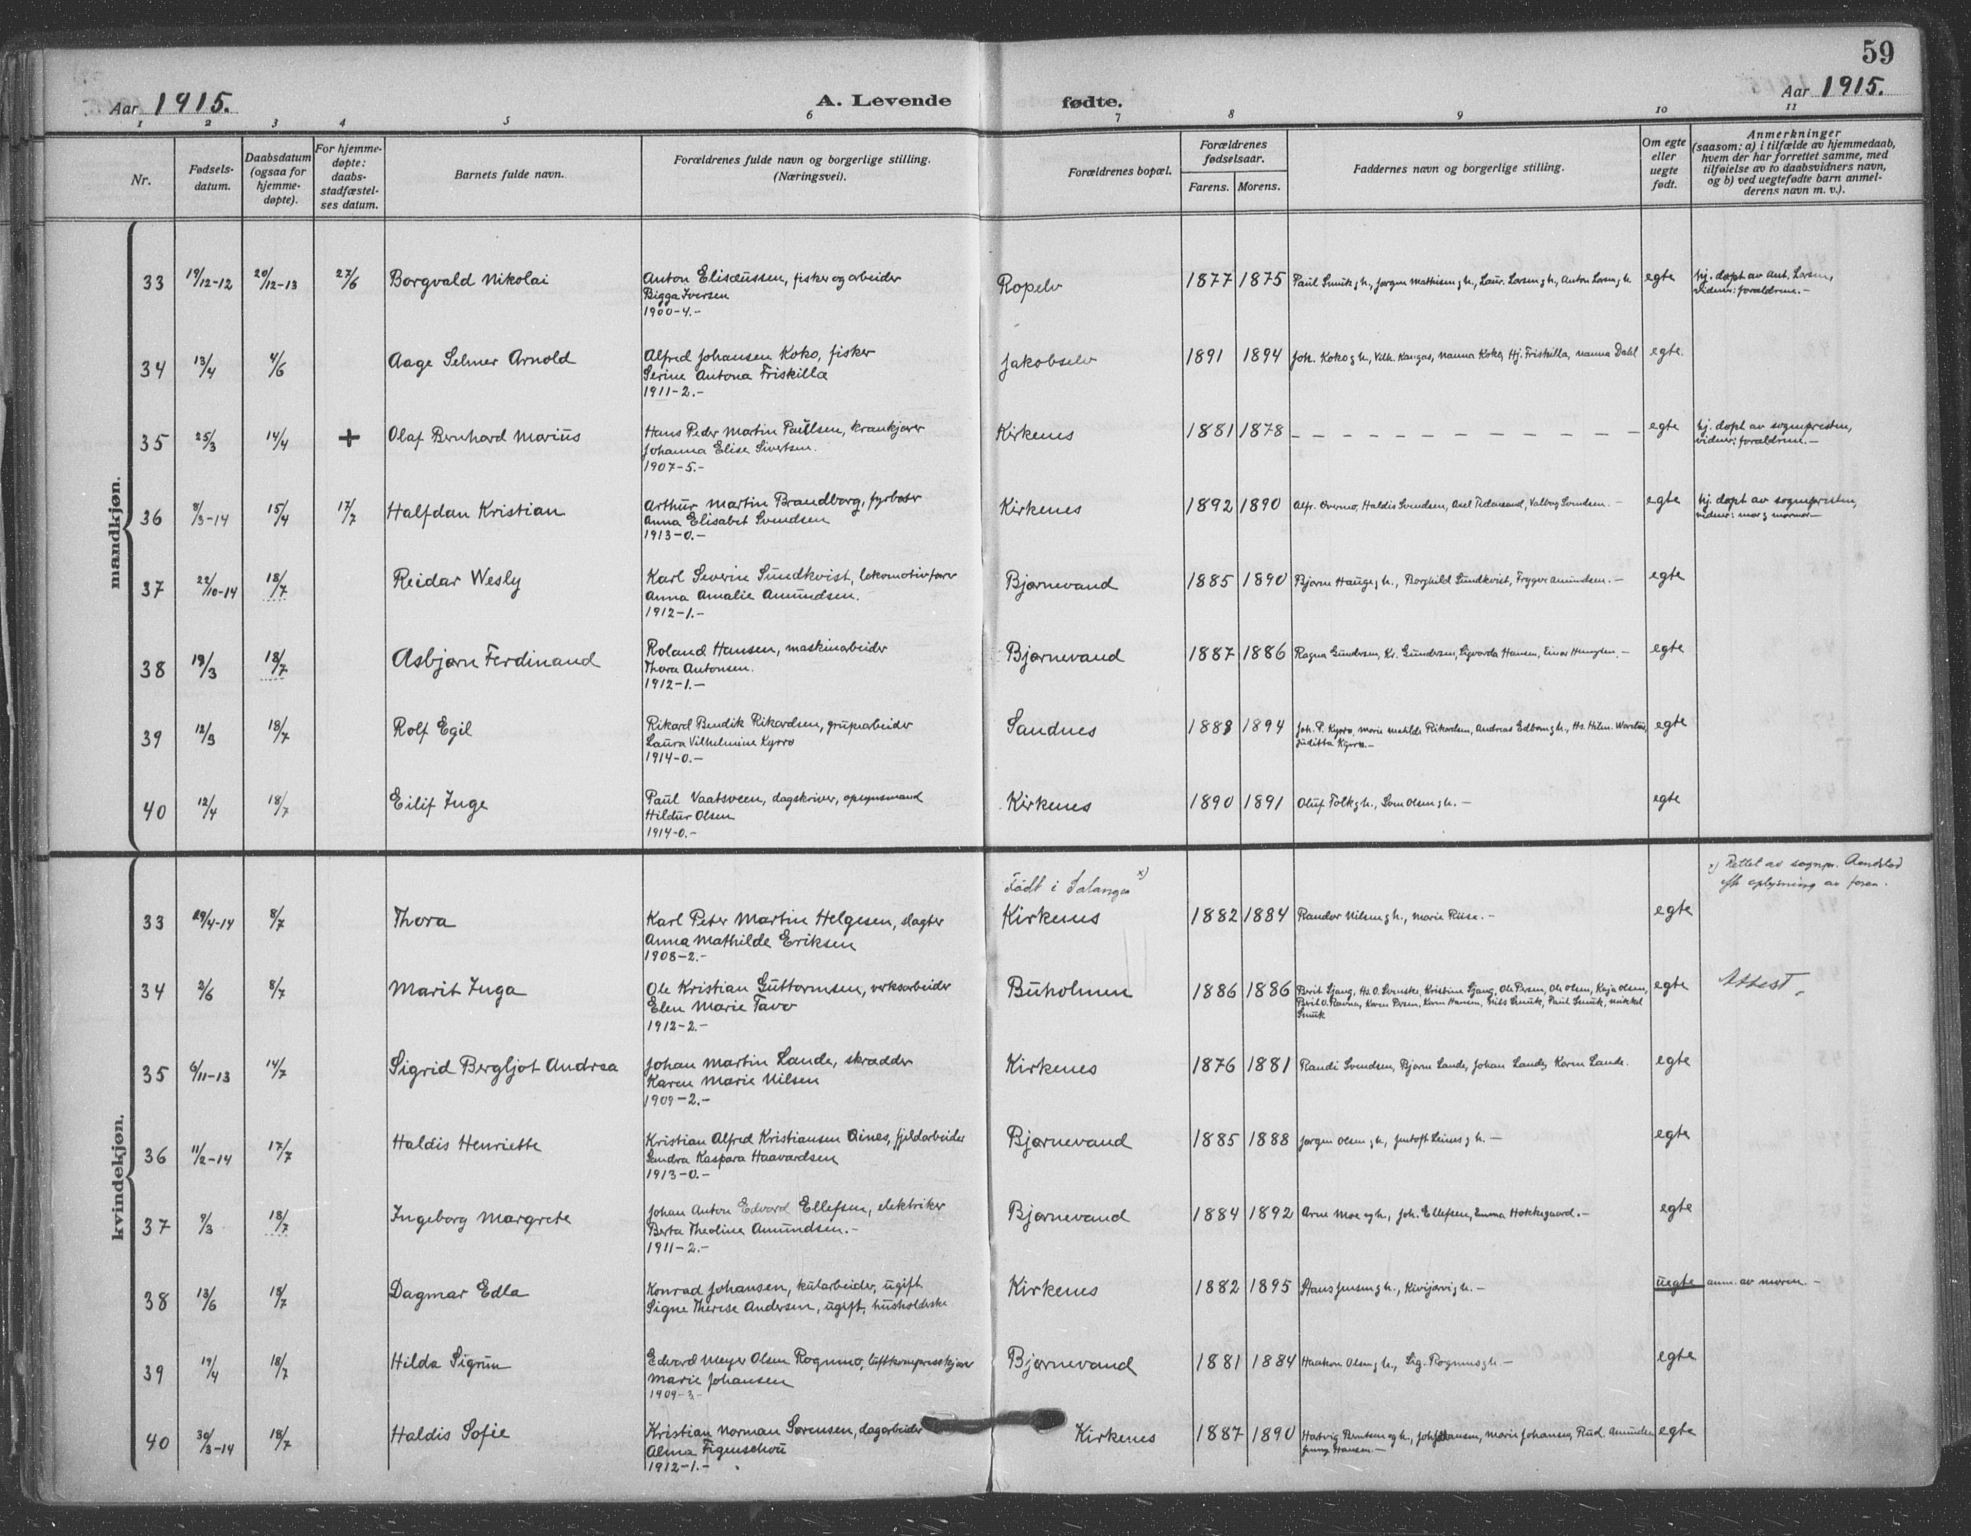 59
Aar 1915. A. Levende fødte. Aar 1915.
1 2 3 4 5 6 7 8 9 10 11
Nr.
Fødsels-
datum.
Daabsdatum
(ogsaa for
hjemme-
døpte).
For hjemme-
døpte:
daabs-
stadfæstel-
ses datum.
Barnets fulde navn.
Forældrenes fulde navn og borgerlige stilling.
(Næringsvei).
Forældrenes bopæl.
Forældrenes
fødselsaar.
Farens. Morens.
Faddernes navn og borgerlige stilling.
Om egte
eller
uegte
født.
Anmerkninger
(saasom: a) i tilfælde av hjemmedaab,
hvem der har forrettet samme, med
tilføielse av to daabsvidners navn,
og b) ved uegtefødte barn anmel-
derens navn m. v.).
mandkjøn.
33 19/12-12 20/12-13 27/6 Borgvald Nikolai Anton Elisæussen, fisker og arbeider Ropelv 1877 1875 Paul Smuk g h., Jørgen Mathisen g h., Laur. Larsen g h., Anton Larsen g h. egte hj. døpt av Ant. Larsen,
Bigga Iversen vidner: forældrene.-
1900-4.-
34 13/4 4/6 Aage Selmer Arnold Alfred Johansen Koko, fisker Jakobselv 1891 1894 Joh. Koko g h., Vilh. Kangas, Nanna Koko, Hj. Friskilla, Nanna Dahl egte.
Serine Antona Friskilla
1911-2.-
35 25/3 14/4 + Olaf Bernhard Marius Hans Peder Martin Paulsen, krankjører Kirkenes 1881 1878 - - - - - - - - - egte hj. døpt av sognepresten,
Johanna Elise Sivertsen. vidner: forældrene.-
1907-5.-
36 8/3-14 15/4 17/7 Halfdan Kristian Arthur Martin Brandborg, fyrbøter Kirkenes 1892 1890 Alfr. Overmo, Haldis Svendsen, Axel Tidemand, Valborg Svendsen.- egte hj. døpt av sognepresten,
Anna Elisabet Svendsen vidner: mor g mormor-
1913-0.-
37 22/10-14 18/7 Reidar Wesly Karl Severin Sundkvist, lokomotivfører Bjørnevand 1885 1890 Bjarne Hauge g h., Borghild Sundkvist, Trygve Amundsen.- egte
Anna Amalie Amundsen.
1912-1.-
38 19/3 18/7 Asbjørn Ferdinand Roland Hansen, maskinarbeider Bjørnevand 1887 1886 Ragna Gundersen, Kr. Gundersen, Sigvarda Hansen, Einar .- egte
Thora Antonsen.
1912-1.-
39 12/3 18/7 Rolf Egil Rikard Bendik Rikardsen, grubearbeider Sandnes 1888 1894 Joh. P. Kyrrø, Marie Matilde Rikardsen, Andreas Edbom g h., Hs. Hilm. , egte
Laura Vilhelmine Kyrrø Juditta Kyrrø.-
1914-0.-
40 12/4 18/7 Eilif Inge Paul Vaatsveen, dagskriver, opsynsmand Kirkenes 1890 1891 Oluf Folk g h., Sven Olsen g h.- egte
Hildur Olsen
1914-0.-
kvindekjøn.
Født i Salangen x) x) Rettet av sognepr. Aandstad
eft. oplysning av faren.
33 29/4-14 8/7 Thora Karl Peter Martin Helgesen, slagter Kirkenes 1882 1884 Randor Nilsen g h., Marie Riise.- egte
Anna Mathilde Eriksen
1908-2.-
34 2/6 8/7 Marit Inga Ole Kristian Guttormsen, verksarbeider Buholmen 1886 1886 Berit Sjang, Hs. O. Svenske, Kristine Sjang, Ole Persen, Ole Olsen, Kaja Olsen, egte Attest.
Elen Marie Tavo Berit O. Ravna, Karen Persen, Karen Hansen, Nils Smuk, Paul Smuk, Mikkel
1912-2.- Smuk
35 6/11-13 14/7 Sigrid Bergljot Andrea Johan Martin Lande, skrædder Kirkenes 1876 1881 Randi Svendsen, Bjarne Lande, Johan Lande, Karen Lande. egte
Karen Marie Nilsen
1909-2.-
36 11/2-14 17/7 Haldis Henriette Kristian Alfred Kristiansen Aines, fjeldarbeider Bjørnevand 1885 1888 Jørgen Olsen g h., Leines g h.- egte
Sandra Kaspara Haavardsen
1913-0.-
37 9/3 18/7 Ingeborg Margrete Johan Anton Edvard Ellefsen, elektriker Bjørnevand 1884 1892 Arne Moe og h., Joh. Ellefsen, Emma Hokkegaard.- egte
Berta Theoline Amundsen.-
1911-2.-
38 13/6 18/7 Dagmar Edla Konrad Johansen, kularbeider, ugift Kirkenes 1882 1895 Hans Jensen g h., Kivijærvi g h.- uegte anm. av moren.-
Signe Therese Andersen, ugift, husholderske
39 19/4 18/7 Hilda Sigrun Edvard Meyer Olsen Rognmo, luftkompresskjører Bjørnevand 1881 1884 Haakon Olsen g h., Sig. Rognmo g h.- egte
Marie Johansen
1909-3.-
40 30/3-14 18/7 Haldis Sofie Kristian Norman Sørensen, dagarbeider Kirkenes 1887 1890 Hartvig Berntsen og h., Johansen, Marie Johansen, Rud. Amundsen egte
Alma Figenschou Jenny Hansen.-
1912-1.-